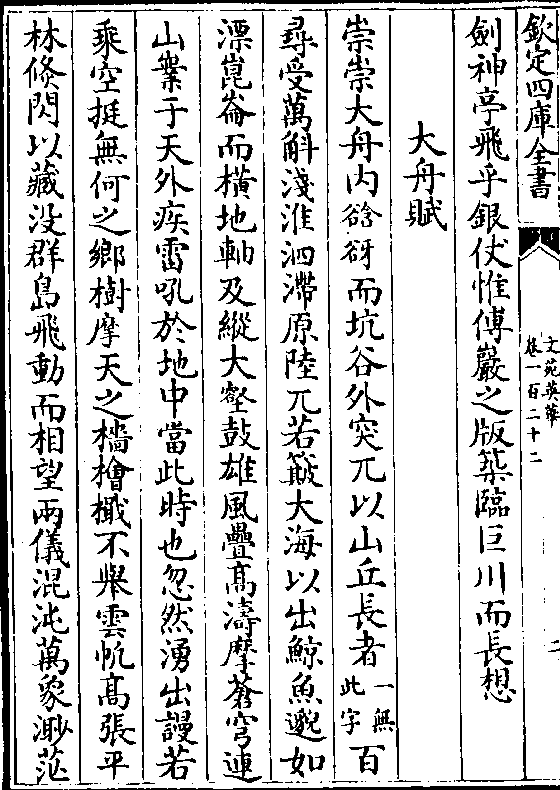 欽定四庫全書
文苑英華
卷一百二十二
劍神亭飛乎銀仗惟傅巖之版築臨巨川而長想
大舟賦
崇崇大舟内谽谺而坑谷外突兀以山丘長者一無此字百
尋受萬斛淺淮泗滯原陸兀若簸大海以出鯨魚邈如
漂崑崙而橫地軸及縱大壑鼓雄風疊髙濤摩蒼穹連
山業于天外疾雷吼於地中當此時也忽然湧出謾若
乘空挺無何之鄉樹摩天之檣檜檝不舉雲帆髙張平
林倏閃以藏没群島飛動而相望兩儀混沌萬象渺茫